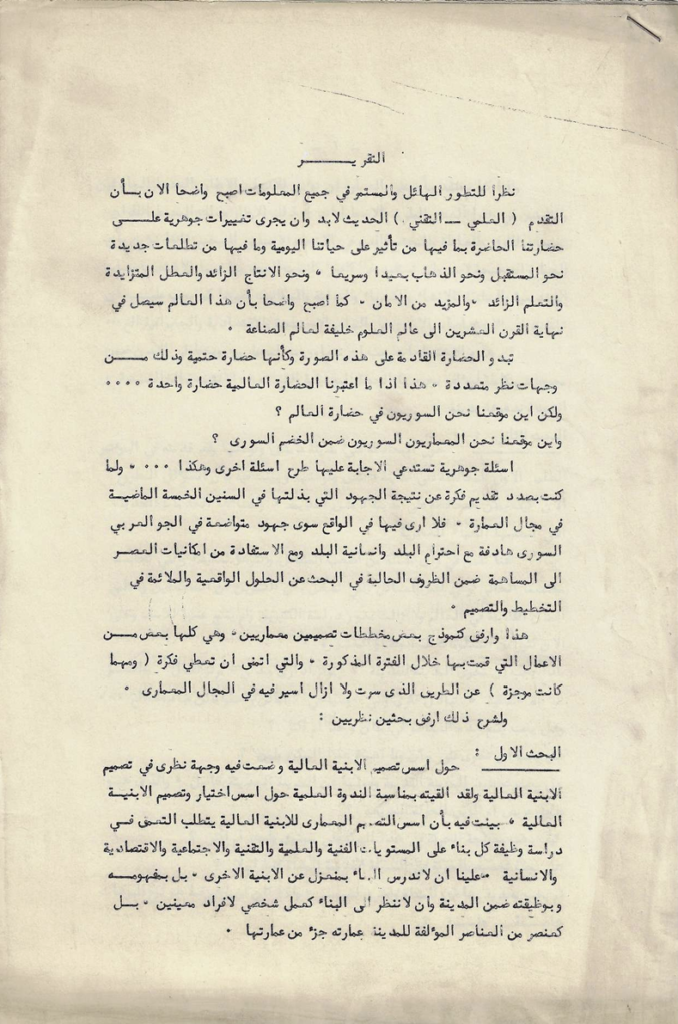 التقريـــــر
نظرا للتطور الهائل والمستمر في جميع المعلومات اصبح واضحا الان بـــأن
التقدم ( العلمي ــ التقني ) الحديث لابد وان يجرى تغييرات جوهرية علـــى
حضارتنا الحاضرة بما فيها من تأثير على حياتنا اليومية وما فيها من تطلعات جديدة
نحو المستقبل ونحو الذهاب بعيدا وسريعا ٠ ونحو الانتاج الزائد والعطل المتزايدة
والتعلم الزائد ٠ والمزيد من الامان ٠ كما اصبح واضحا بأن هذا العالم سيصل في
نهاية القرن العشرين الى عالم العلوم خليفة لعالم الصناعة ٠
تبدو الحضارة القادمة على هذه الصورة وكأنها حضارة حتمية وذلك مـــن
وجهات نظر متعددة ٠ هذا اذا ما اعتبرنا الحضارة العالمية حضارة واحدة ٠٠٠٠
ولكن اين موقعنا نحن السوريون في حضارة العالم ؟
واين موقعنا نحن المعماريون السوريون ضمن الخضم السورى ؟
اسئلة جوهرية تستدعي الاجابة عليها طرح اسئلة اخرى وهكذا ٠٠٠٠ ولما
كنت بصدد تقديم فكرة عن نتيجة الجهود التي بذلتها في السنين الخمسة الماضيـة
في مجال العمارة ٠ فلا ارى فيها في الواقع سوى جهود متواضعة في الجو العربي
السورى هادفة مع احترام البلد وانسانية البلد ومع الاستفادة من امكانيات العصـر
الى المساهمة ضمن الظروف الحالية في البحث عن الحلول الواقعية والملائمة في
التخطيط والتصميم ٠
هذا وارفق كنموذج بعض مخططات تصميمين معماريين ٠ وهي كلها بعض مـــن
الاعمال التي قمت بها خلال الفترة المذكورة ٠ والتي اتمنى ان تعطي فكرة ( ومهما
كانت موجزة ) عن الطريق الذى سرت ولا ازال اسير فيه في المجال المعمارى ٠
ولشرح ذلك ارفق بحثين نظريين :
البحث الاول : حول اسس تصميم الابنية العالية وضعت فيه وجهة نظرى في تصميم
الابنية العالية ولقد القيته بمناسبة الندوة العلمية حول اسس اختيار وتصميم الابنيـة
العالية ٠ بينت فيه بأن اسس التصميم المعمارى للابنية العالية يتطلب التعمق فـي
دراسة وظيفة كل بناء على المستويات الفنية والعلمية والتقنية والاجتماعية والاقتصادية
والانسانية ٠ علينا ان لاندرس البناء بمنعزل عن الابنية الاخرى ٠ بل بمفهومـــه
وبوظيفته ضمن المدينة وان لاننظر الى البناء كعمل شخصي لافراد معينين ٠ بـــل
كعنصر من العناصر المؤلفة للمدينة عمارته جزء من عمارتها ٠